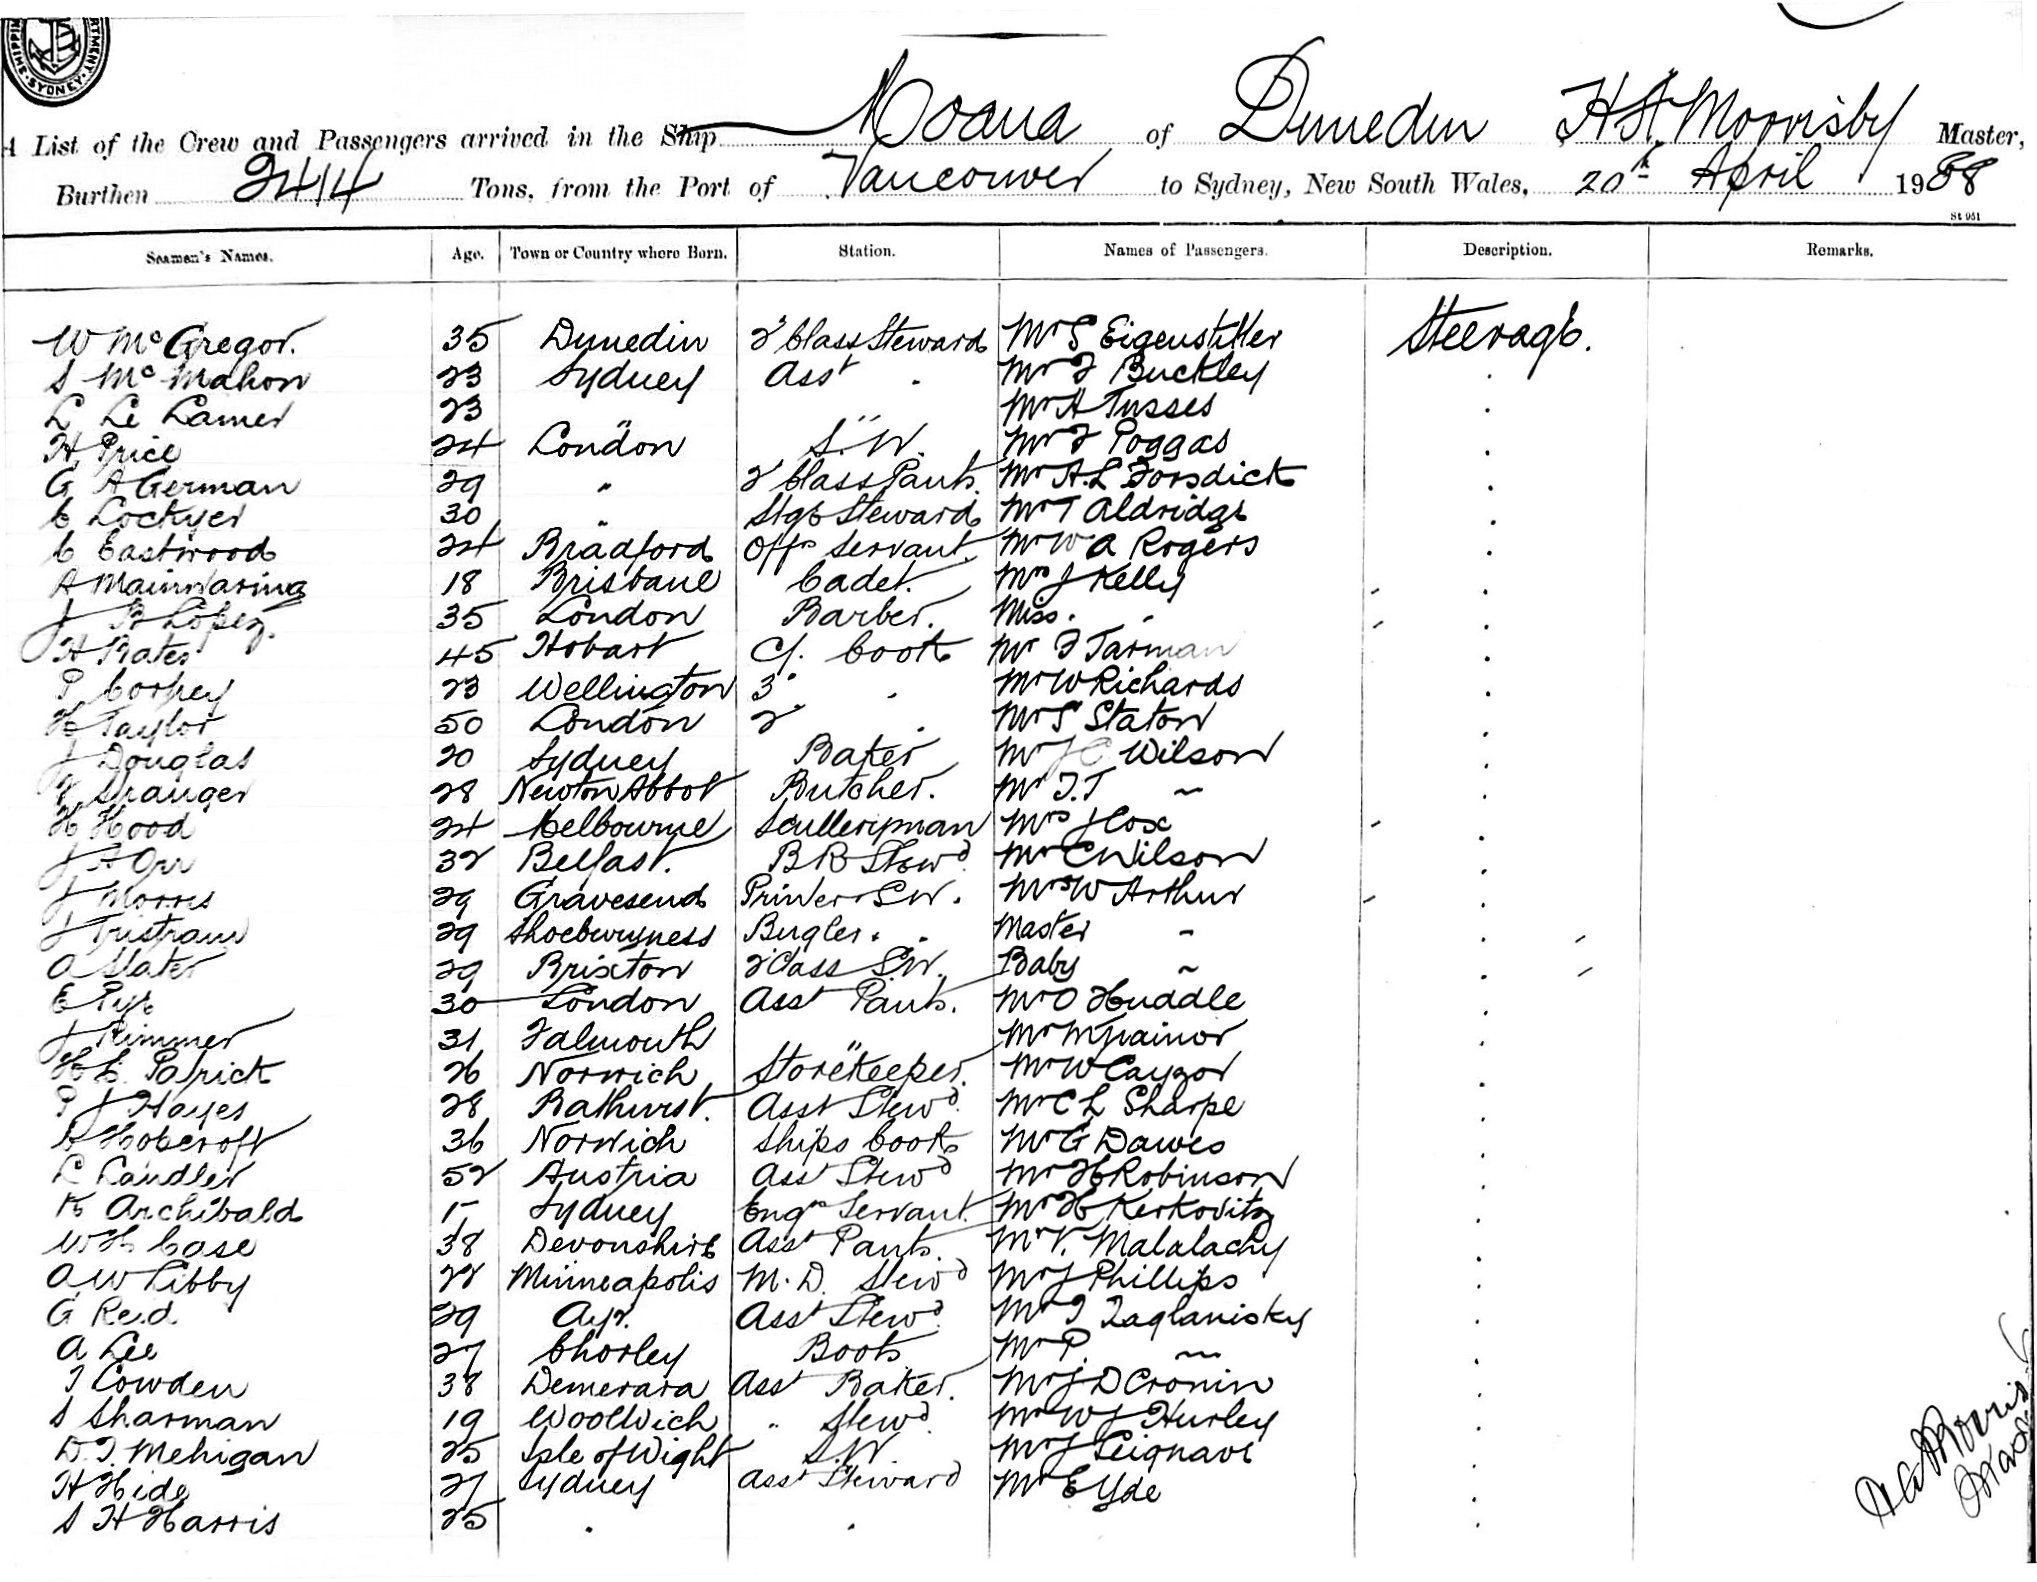 SYDNEY
A List of the Crew and Passengers arrived in the Ship Moana of Dunedin H A Morrisby Master,
Burthen 2414 Tons, from the Port of Vancouver to Sydney, New South Wales, 20th April 1988
St 951
Seamen's Names. Age. Town or Country where Born. Station. Names of Passengers. Description. Remarks.
W McGregor. 35 Dunedin 2 Class Steward Mr S Eigenstitter Steerage.
S McMahon 23 Sydney Asst . Mr F Buckley .
L Le Lamer 23 " " Mr H Tusses .
H Price 24 London S.W. Mr F Poggas .
G A German 29 " 2 Class Pants. Mr A.L Forsdick .
C Lockyer 30 " Stge Steward Mr T Aldridge .
C Eastwood 24 Bradford Offrs Servant Mr W A Rogers .
A Mainwaring 18 Brisbane Cadet. Mrs J Kelly .
J B Lopez. 35 London Barber. Miss . .
H Bates 45 Hobart C/. Cook Mr F Tarman .
P Corpey 23 Wellington 3" . Mr W Richards .
H Taylor 50 London 2" . Mr S Staton .
J Douglas 20 Sydney Baker Mr J C Wilson .
Stranger 28 Newton Abbot Butcher. Mr T.T ~ .
H Hood 24 Melbourne Sculleryman Mrs J Cox .
J A Orr 32 Belfast. B R Stewd Mr C Wilson .
J Morris 29 Gravesend Printer S.W. Mrs W Arthur .
J Tristram 29 Shoeburyness Bugler. . Master - .
A Slater 29 Brixton 2 Class S.W. Baby ~ .
E Pye 30 London Asst Pants. Mr O Huddle .
J Rimmer 31 Falmouth " Mr M Trainor .
H L Patrick 26 Norwich Storekeeper. Mr W Cayzor .
P J Hayes 28 Bathurst. Asst Stewd. Mr C L Sharpe .
C Hobcroft 36 Norwich Ships Cook Mr G Dawes .
L Landler 52 Austria Asst Stewd Mr H Robinson .
R Archibald 1- Sydney Engrs Servant Mr H Kerkovitz .
W H Case 38 Devonshire Asst Pants. Mr V. Malalachy .
A W Libby 22 Minneapolis M.D. Stewd Mr J Phillips .
G Reid 29 Ayr. Asst Stewd. Mr T Zaglanisky .
A Lee 27 Chorley Boots Mr P. ~ .
T Cowden 38 Demerara Asst Baker. Mr J D Cronin .
S Sharman 19 Woolwich " Stewd. Mr W J Hurley .
D.T. Mehigan 25 Isle of Wight S.W Mr J Seignave .
H Hide 27 Sydney Asst Steward Mr E Yde .
S H Harris 25 . . .
H A Morris
Master